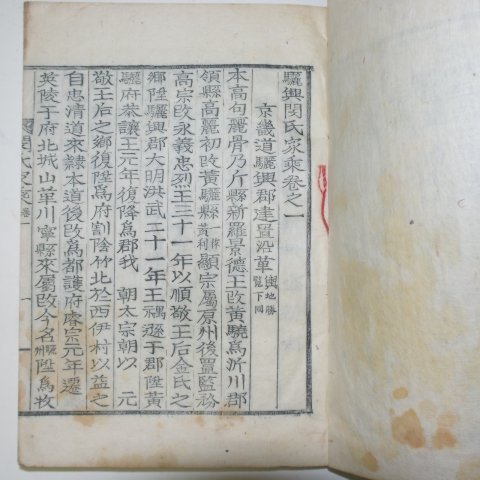 驪興閔氏家乘卷之一
京畿道驪興郡建置沿革輿地勝覽下同
本高句麗骨乃斤縣新羅景德王改黃驍爲沂川郡
領縣高麗初改黃驪縣一稱黃利顯宗屬原州後置監務
高宗改永義忠烈王三十一年以順敬王后金氏之
鄕陞驪興郡大明洪武二十一年王禑遜于郡陞黃
驪府恭讓王元年復降爲郡我 朝太宗朝以 元
敬王后之鄕復陞爲府割陰竹北於西伊村以益之
自忠淸道來隷本道後改爲都護府睿宗元年遷
英陵于府北城山革川寧縣來屬改今名驪州陞爲牧